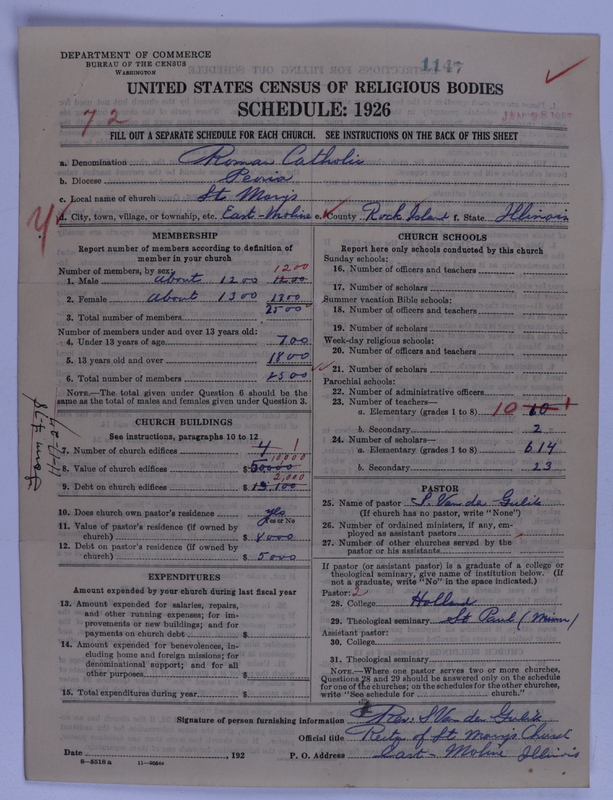 DEPARTMENT OF COMMERCE
BUREAU OF THE CENSUS
WASHINGTON
1147
UNITED STATES CENSUS OF RELIGIOUS BODIES
SCHEDULE: 1926
72
FILL OUT A SEPARATE SCHEDULE FOR EACH CHURCH. SEE INSTRUCTIONS ON THE BACK OF THIS SHEET
a. Denomination Roman Catholic
b. Diocese Peoria
c. Local name of church St Mary's
d. City, town, village, or township, etc. East-Moline e. County Rock Island f. State Illinois
MEMBERSHIP
Report number of members according to definition of
member in your church
Number of members, by sex: 1200
1. Male about 1200 1200
2. Female about 1300 1300
3. Total number of members 2500
Number of members under and over 13 years old:
4. Under 13 years of age 700
5. 13 years old and over 1800
6. Total number of members 2500
NOTE.—The total given under Question 6 should be the
same as the total of males and females given under Question 3.
CHURCH BUILDINGS
See instructions, paragraphs 10 to 12
7. Number of church edifices 4 1
10,000
8. Value of church edifices $
2,000
9. Debt on church edifices $
10. Does church own pastor's residence? yes
Yes or No
11. Value of pastor's residence (if owned by
church) $ 8000
12. Debt on pastor's residence (if owned by
church) $ 5000
EXPENDITURES
Amount expended by your church during last fiscal year
13. Amount expended for salaries, repairs,
and other running expenses; for im-
provements or new buildings; and for
payments on church debt $
14. Amount expended for benevolences, in-
cluding home and foreign missions; for
denominational support; and for all
other purposes $
15. Total expenditures during year $
CHURCH SCHOOLS
Report here only schools conducted by this church
Sunday schools:
16. Number of officers and teachers
17. Number of scholars
Summer vacation Bible schools:
18. Number of officers and teachers
19. Number of scholars
Week-day religious schools:
20. Number of officers and teachers
21. Number of scholars
Parochial schools:
22. Number of administrative officers
23. Number of teachers—
a. Elementary (grades 1 to 8) 10 10
b. Secondary 2
24. Number of scholars—
a. Elementary (grades 1 to 8) 614
b. Secondary 23
PASTOR
25. Name of pastor
(If church has no pastor, write "None")
26. Number of ordained ministers, if any, em-
ployed as assistant pastors
27. Number of other churches served by the
pastor or his assistants
If pastor (or assistant pastor) is a graduate of a college or
theological seminary, give name of institution below. (If
not a graduate, write "No" in the space indicated.)
Pastor: 2
28. College Holland
29. Theological seminary St Paul (Minn)
Assistant pastor:
30. College
31. Theological seminary
NOTE.—Where one pastor serves two or more churches,
Questions 28 and 29 should be answered only on the schedule
for one of the churches; on the schedules for the other churches,
write "See schedule for church."
Signature of person furnishing information Rev.
Official title of St Mary's Church
Date , 192 P. O. Address East-Moline Illinois
8-5518 a